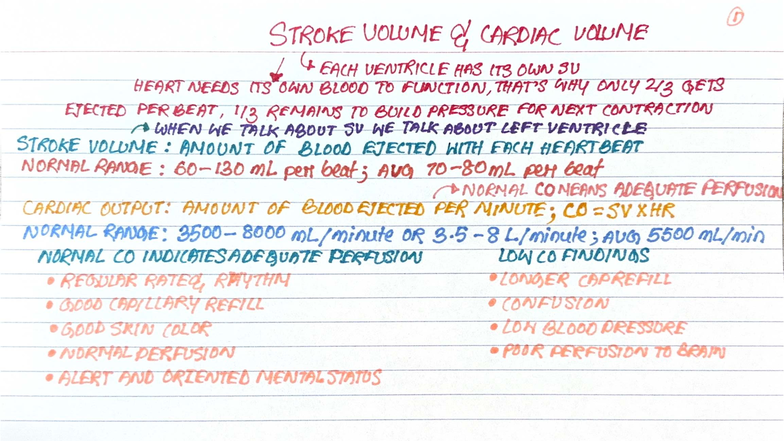 ①
STROKE VOLUME & CARDIAC VOLUME
↳ EACH VENTRICLE HAS ITS OWN SV
HEART NEEDS ITS OWN BLOOD TO FUNCTION, THAT'S WHY ONLY 2/3 GETS
EJECTED PER BEAT, 1/3 REMAINS TO BUILD PRESSURE FOR NEXT CONTRACTION
→ WHEN WE TALK ABOUT SV WE TALK ABOUT LEFT VENTRICLE
STROKE VOLUME : AMOUNT OF BLOOD EJECTED WITH EACH HEARTBEAT
NORMAL RANGE : 60-130 mL per beat ; AVG 70-80 mL per beat
→ NORMAL CO MEANS ADEQUATE PERFUSION
CARDIAC OUTPUT: AMOUNT OF BLOOD EJECTED PER MINUTE ; CO = SV X HR
NORMAL RANGE: 3500-8000 mL/minute OR 3.5-8 L/minute ; AVG 5500 mL/min
NORMAL CO INDICATES ADEQUATE PERFUSION
• REGULAR RATE & RHYTHM
• GOOD CAPILLARY REFILL
• GOOD SKIN COLOR
• NORMAL PERFUSION
• ALERT AND ORIENTED MENTAL STATUS
LOW CO FINDINGS
• LONGER CAP REFILL
• CONFUSION
• LOW BLOOD PRESSURE
• POOR PERFUSION TO BRAIN